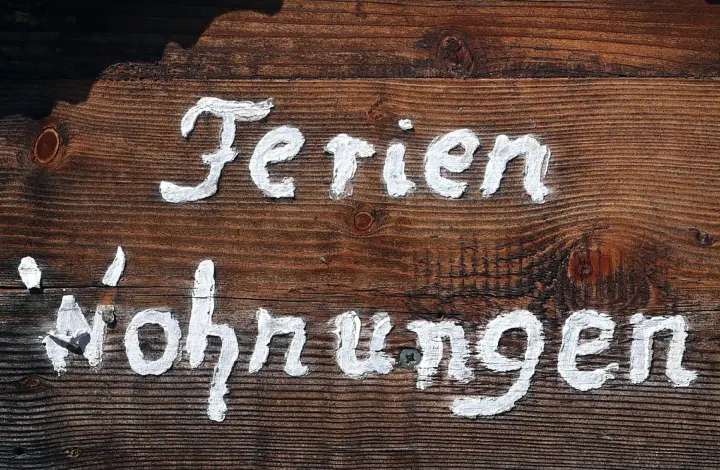 Ferien
Wohnungen